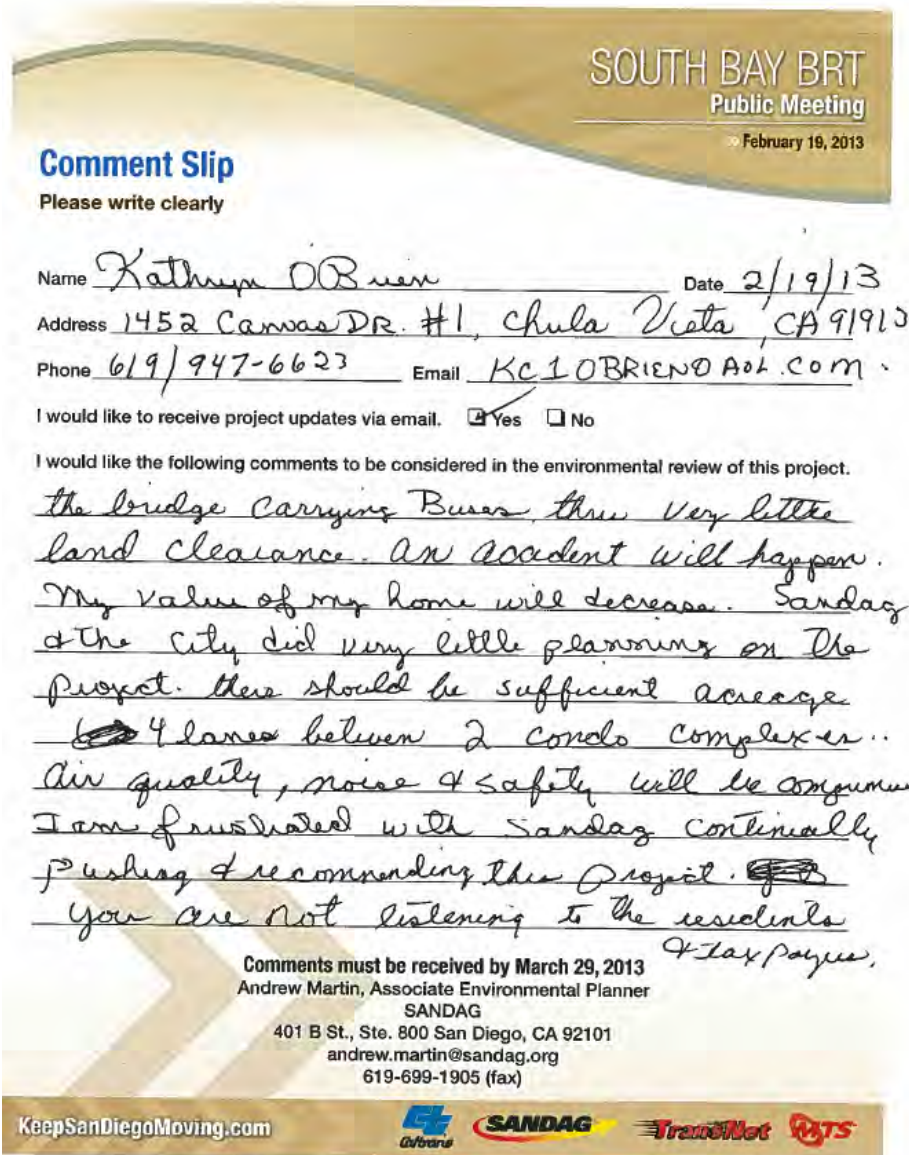 SOUTH BAY BRT
Public Meeting
» February 19, 2013
Comment Slip
Please write clearly
Name Kathryn OBrien Date 2/19/13
Address 1452 Canvas DR. #1, Chula Vista, CA 91913
Phone 619/947-6623 Email KC1OBRIEN@AOL.COM.
I would like to receive project updates via email. ☑ Yes ☐ No
I would like the following comments to be considered in the environmental review of this project.
the bridge carrying Buses thru very little
land clearance. An accident will happen.
My value of my home will decrease. Sandag
& the City did very little planning on the
project. there should be sufficient acreage
4 lanes between 2 condo complexes..
Air quality, noise & safety will be
I am frustrated with Sandag continually
pushing & recommending this project.
You are not listening to the residents
& tax payers.
Comments must be received by March 29, 2013
Andrew Martin, Associate Environmental Planner
SANDAG
401 B St., Ste. 800 San Diego, CA 92101
andrew.martin@sandag.org
619-699-1905 (fax)
KeepSanDiegoMoving.com Caltrans SANDAG TransNet MTS